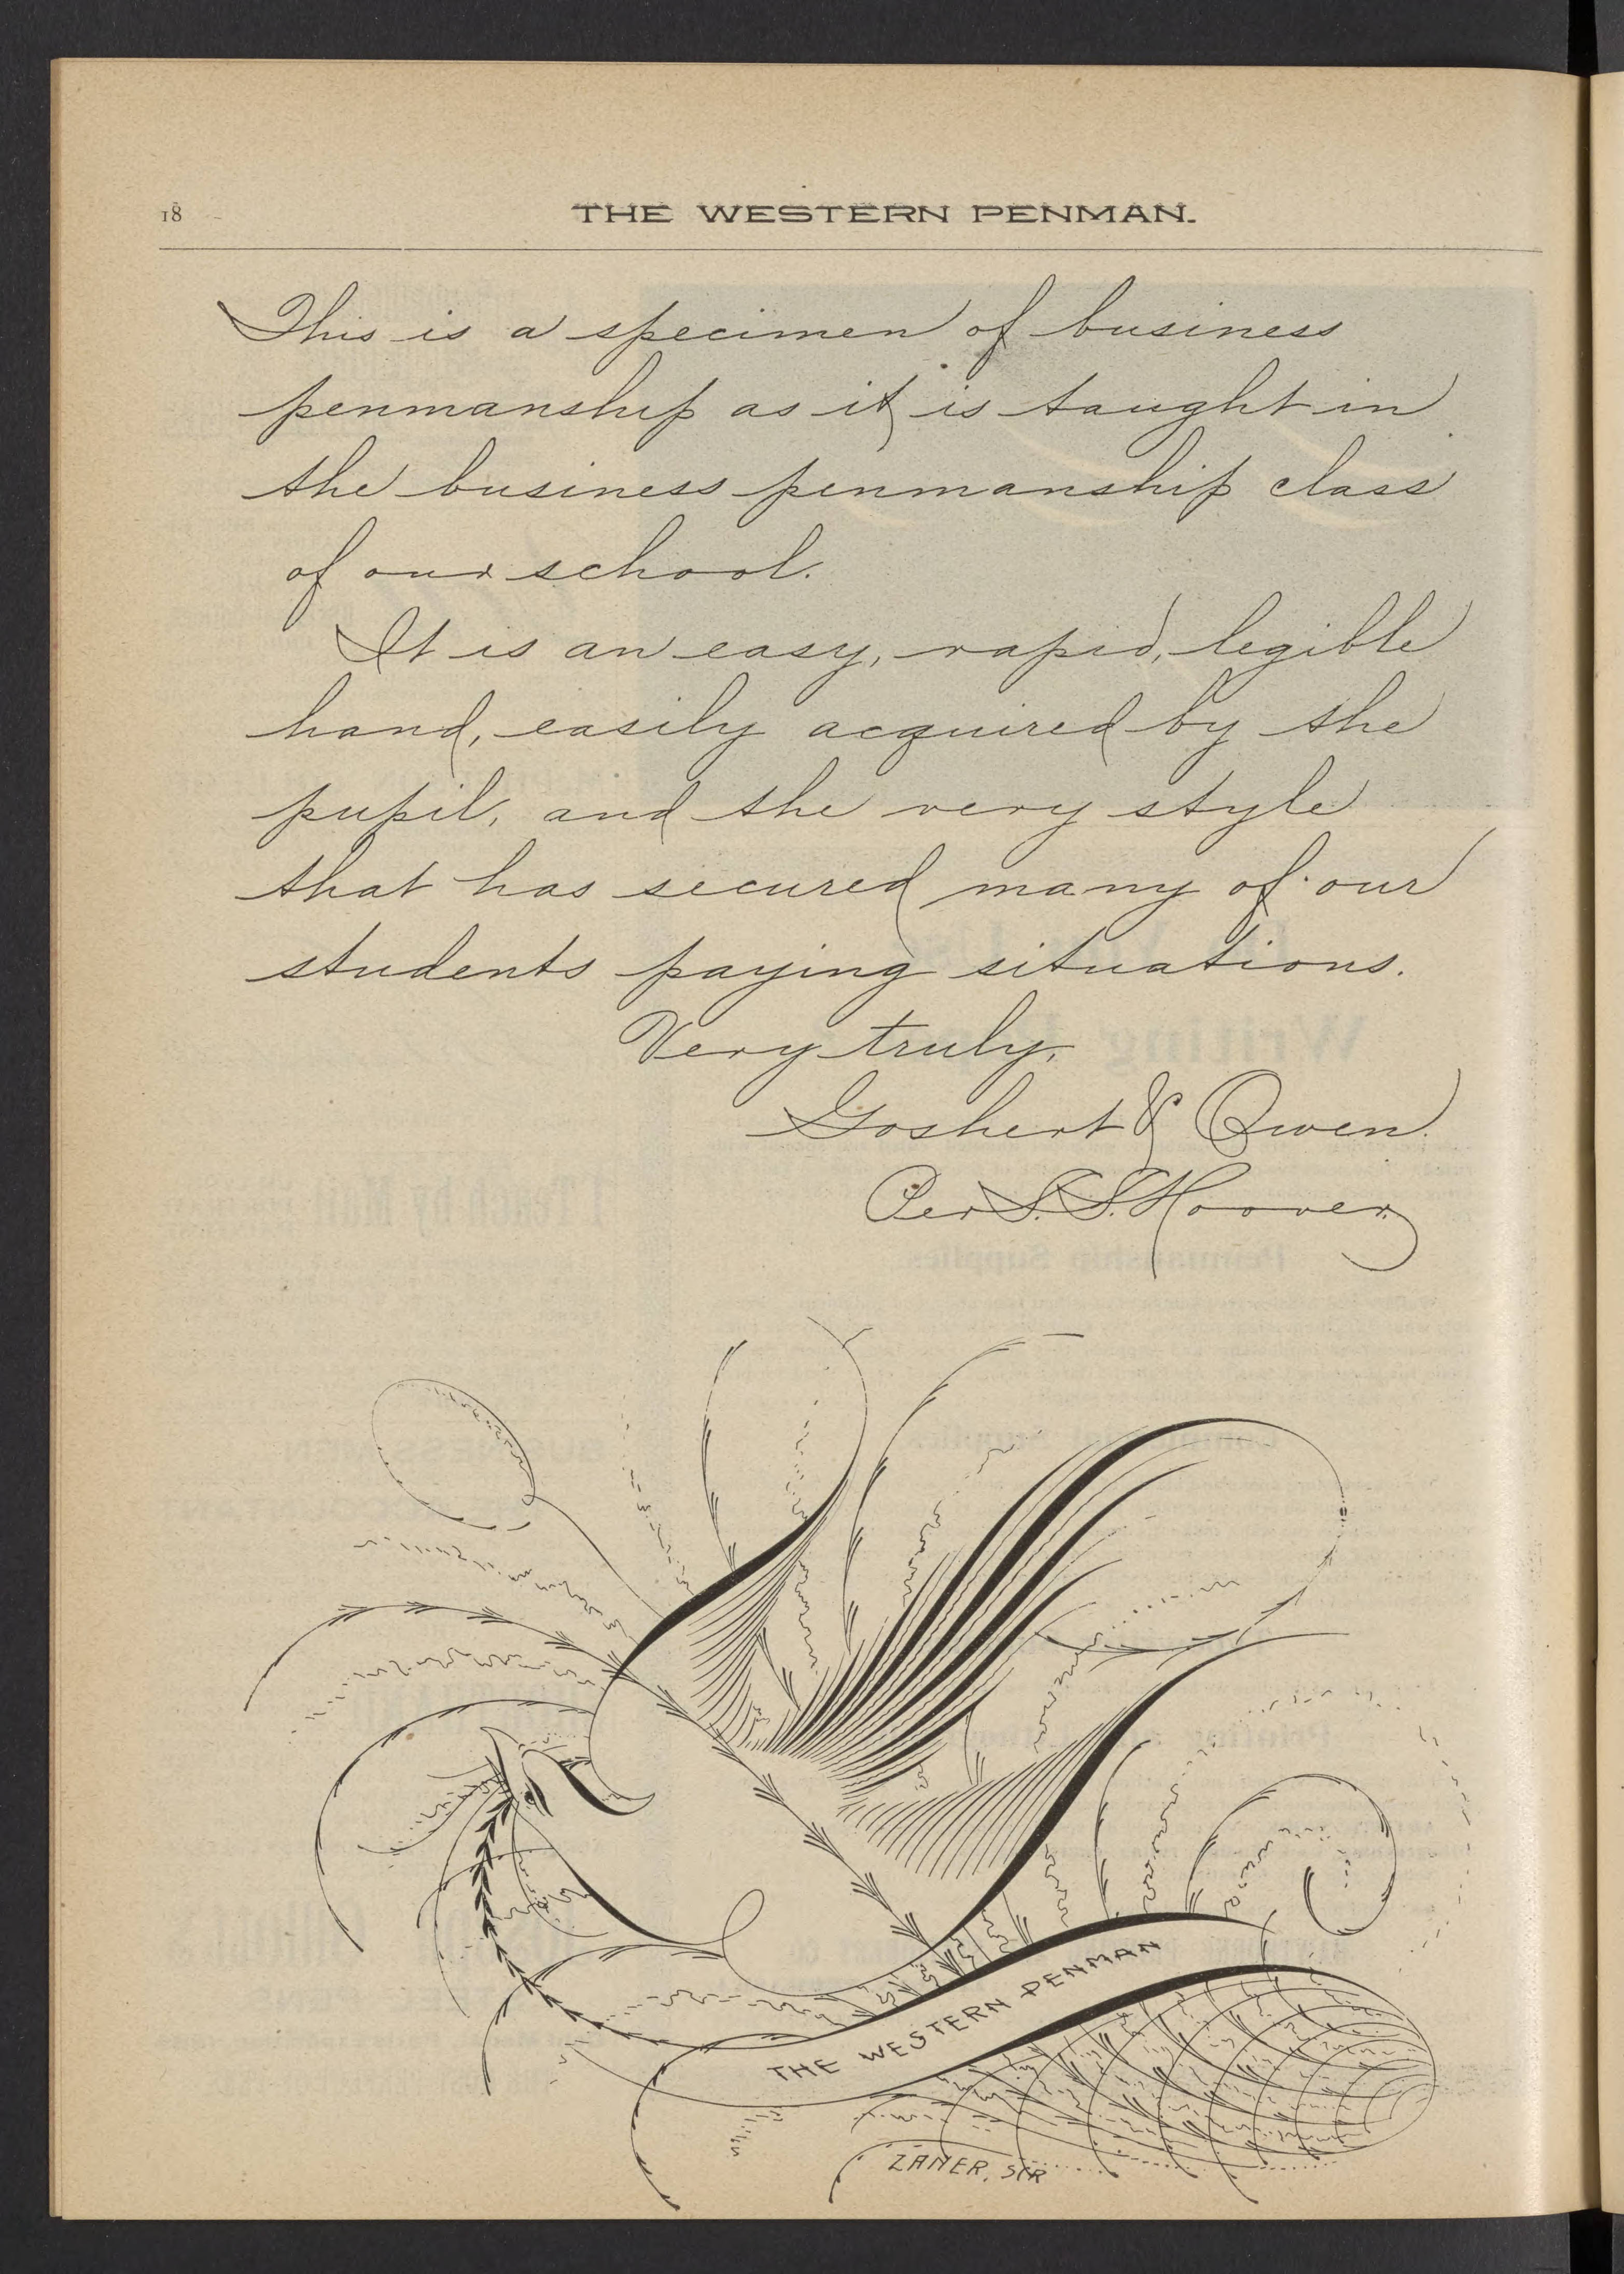 18
THE WESTERN PENMAN.
This is a specimen of business
penmanship as it is taught in
the business penmanship class
of our school.
It is an easy, rapid, legible
hand, easily acquired by the
pupil, and the very style
that has secured many of our
students paying situations.
Very truly,
Goshert & Owen.
Per S. S. Hoover.
THE WESTERN PENMAN
ZANER, SCR